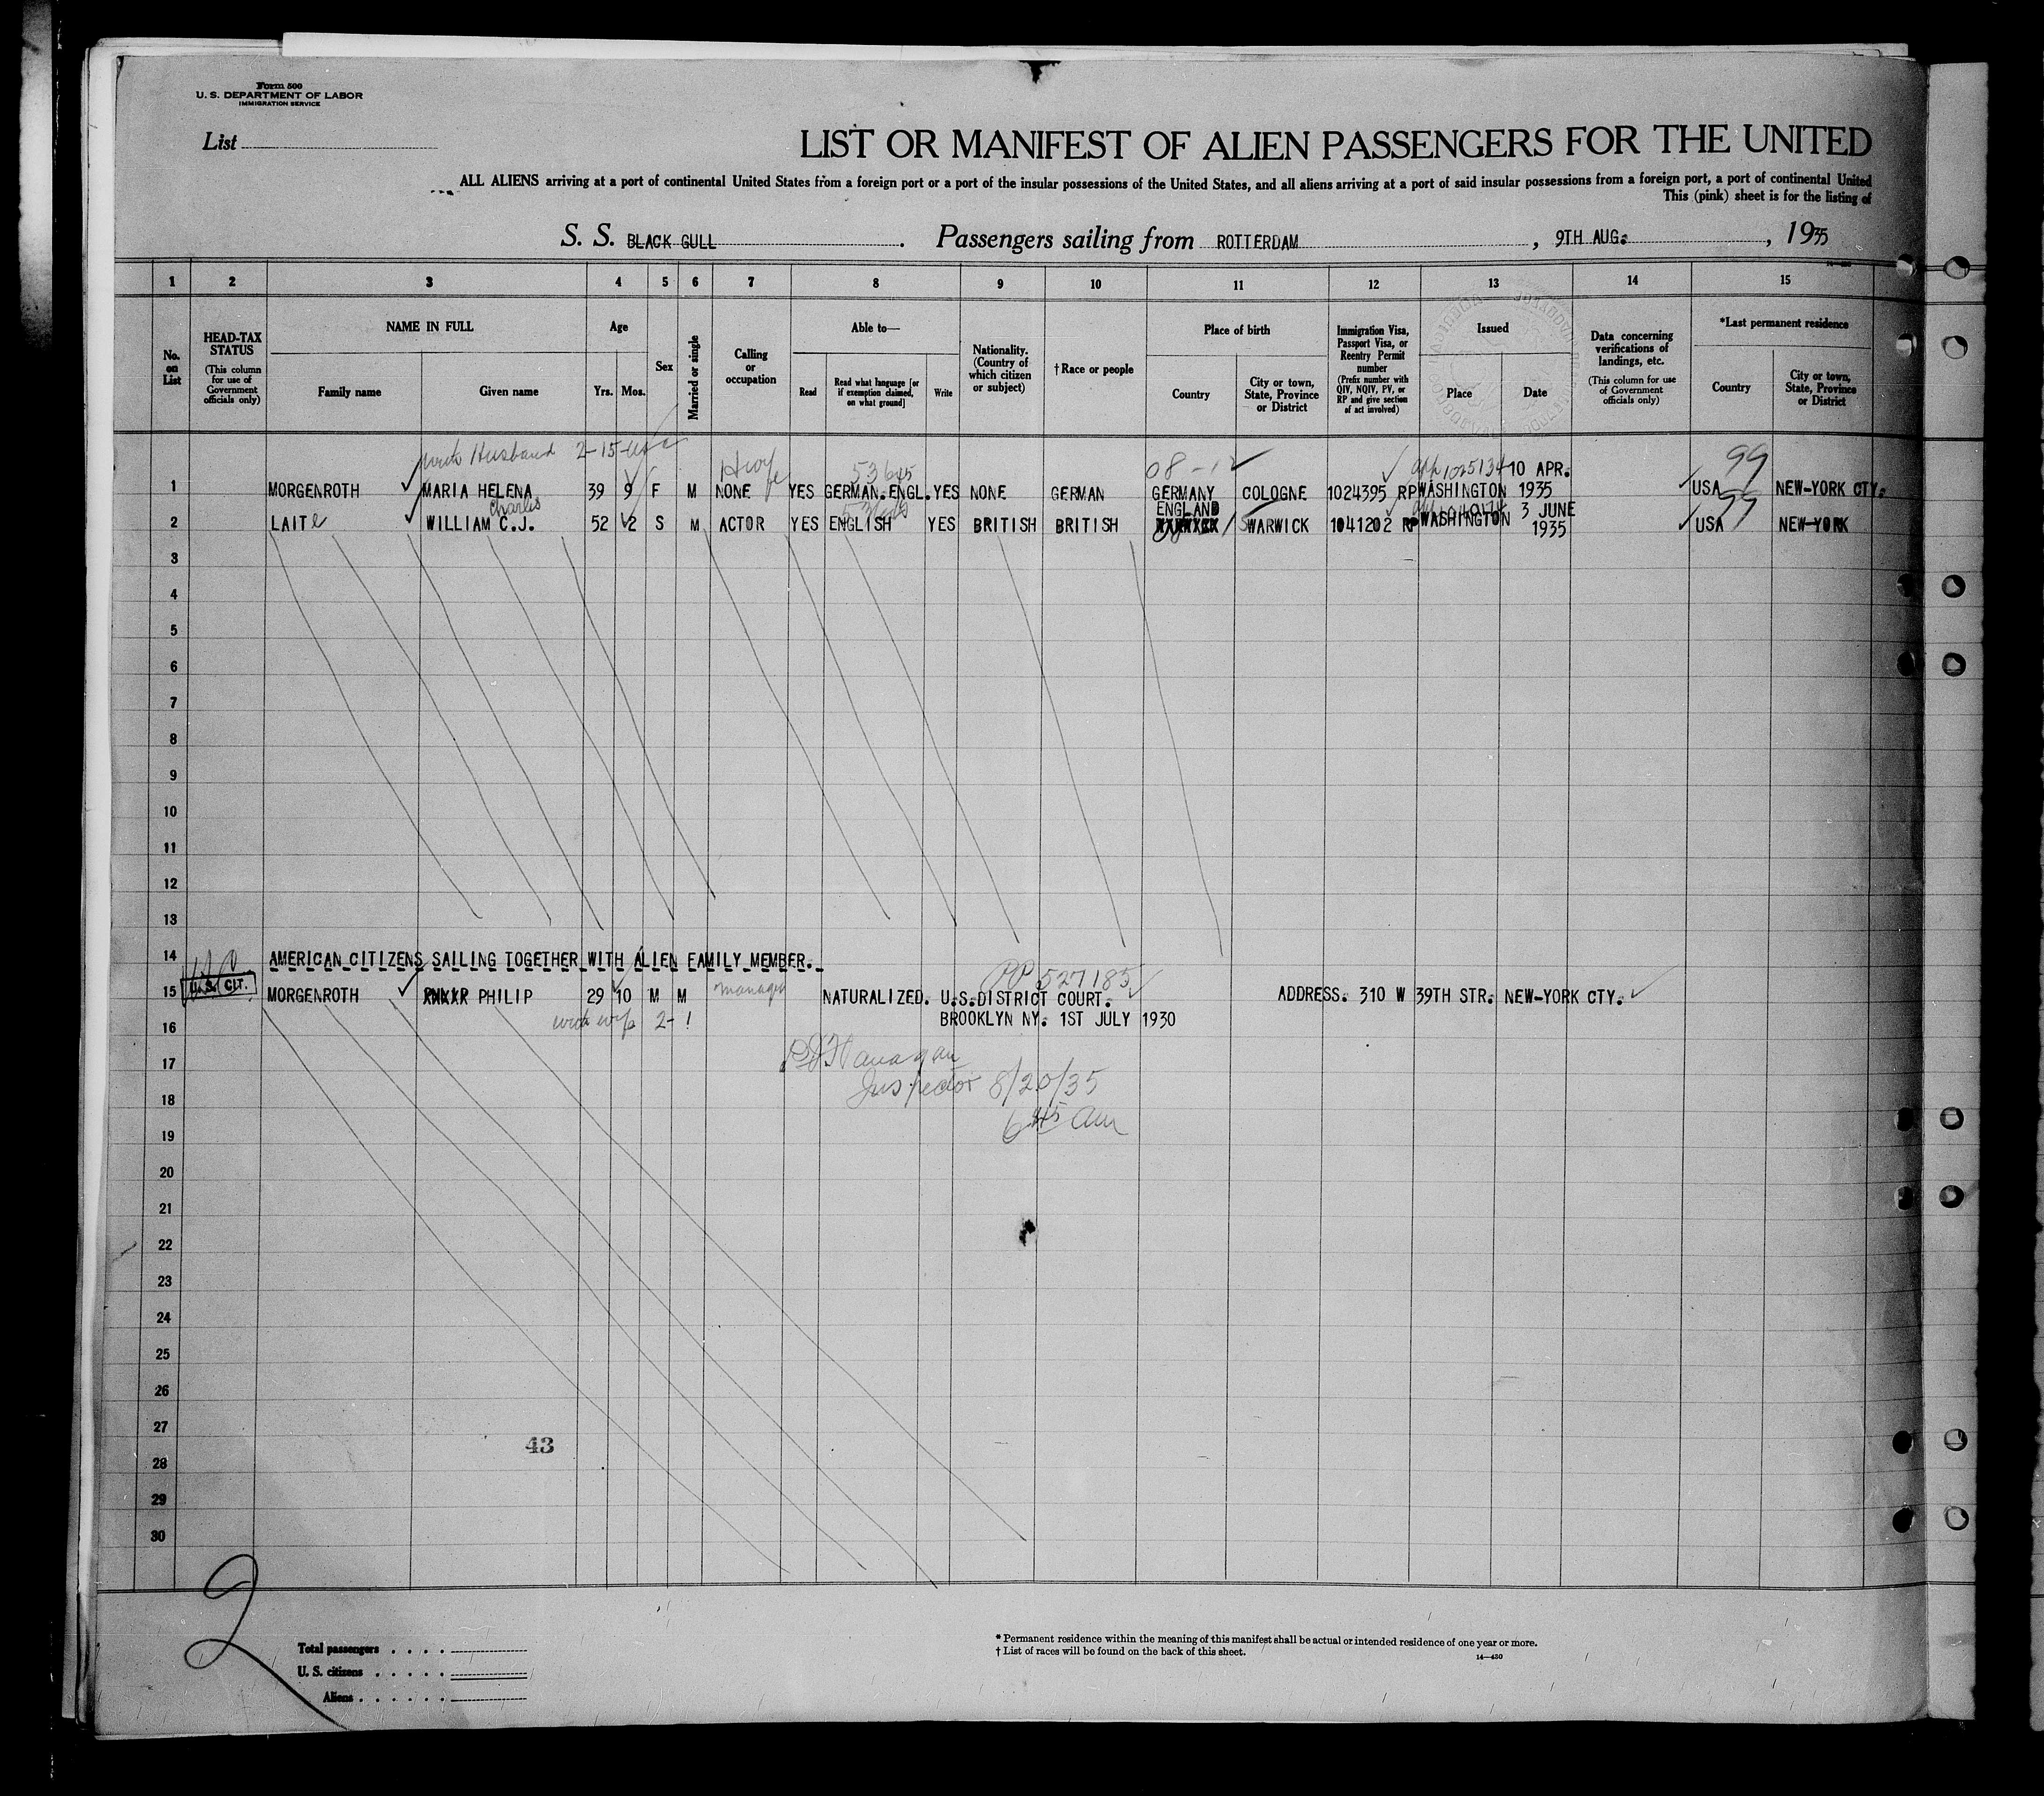 Form 500
U. S. DEPARTMENT OF LABOR
IMMIGRATION SERVICE
List
LIST OR MANIFEST OF ALIEN PASSENGERS FOR THE UNITED
ALL ALIENS arriving at a port of continental United States from a foreign port or a port of the insular possessions of the United States, and all aliens arriving at a port of said insular possessions from a foreign port, a port of continental United
This (pink) sheet is for the listing of
S. S. BLACK GULL. Passengers sailing from ROTTERDAM, 9TH AUG:, 1935
1 2 3 4 5 6 7 8 9 10 11 12 13 14 15
No. on List
HEAD-TAX STATUS (This column for use of Government officials only)
NAME IN FULL
Family name Given name
Age
Yrs. Mos.
Sex
Married or single
Calling or occupation
Able to—
Read Read what language [or if exemption claimed, on what ground] Write
Nationality. (Country of which citizen or subject)
† Race or people
Place of birth
Country City or town, State, Province or District
Immigration Visa, Passport Visa, or Reentry Permit number (Prefix number with QIV, NQIV, PV, or RP and give section of act involved)
Issued
Place Date
Data concerning verifications of landings, etc. (This column for use of Government officials only)
*Last permanent residence
Country City or town, State, Province or District
Husband 2-15- 08-12 99
1 MORGENROTH MARIA HELENA 39 9 F M NONE YES GERMAN.ENGL. YES NONE GERMAN GERMANY COLOGNE 1024395 RP WASHINGTON 10 APR. 1935 USA NEW-YORK CTY.
Charles
2 LAITE WILLIAM C.J. 52 2 S M ACTOR YES ENGLISH YES BRITISH BRITISH ENGLAND WARWICK 1041202 RP WASHINGTON 3 JUNE 1935 USA NEW-YORK
3
4
5
6
7
8
9
10
11
12
13
14 AMERICAN CITIZENS SAILING TOGETHER WITH ALIEN FAMILY MEMBER.
U.S. CIT.
PP 527185
15 MORGENROTH PHILIP 29 10 M M manager NATURALIZED. U.S.DISTRICT COURT. ADDRESS. 310 W 39TH STR. NEW-YORK CTY.
16 with wife 2-1 BROOKLYN NY. 1ST JULY 1930
17
Inspector 8/20/35
18
6 45 am
19
20
21
22
23
24
25
26
27
43
28
29
30
2
Total passengers
U. S. citizens
Aliens
* Permanent residence within the meaning of this manifest shall be actual or intended residence of one year or more.
† List of races will be found on the back of this sheet.
14—430